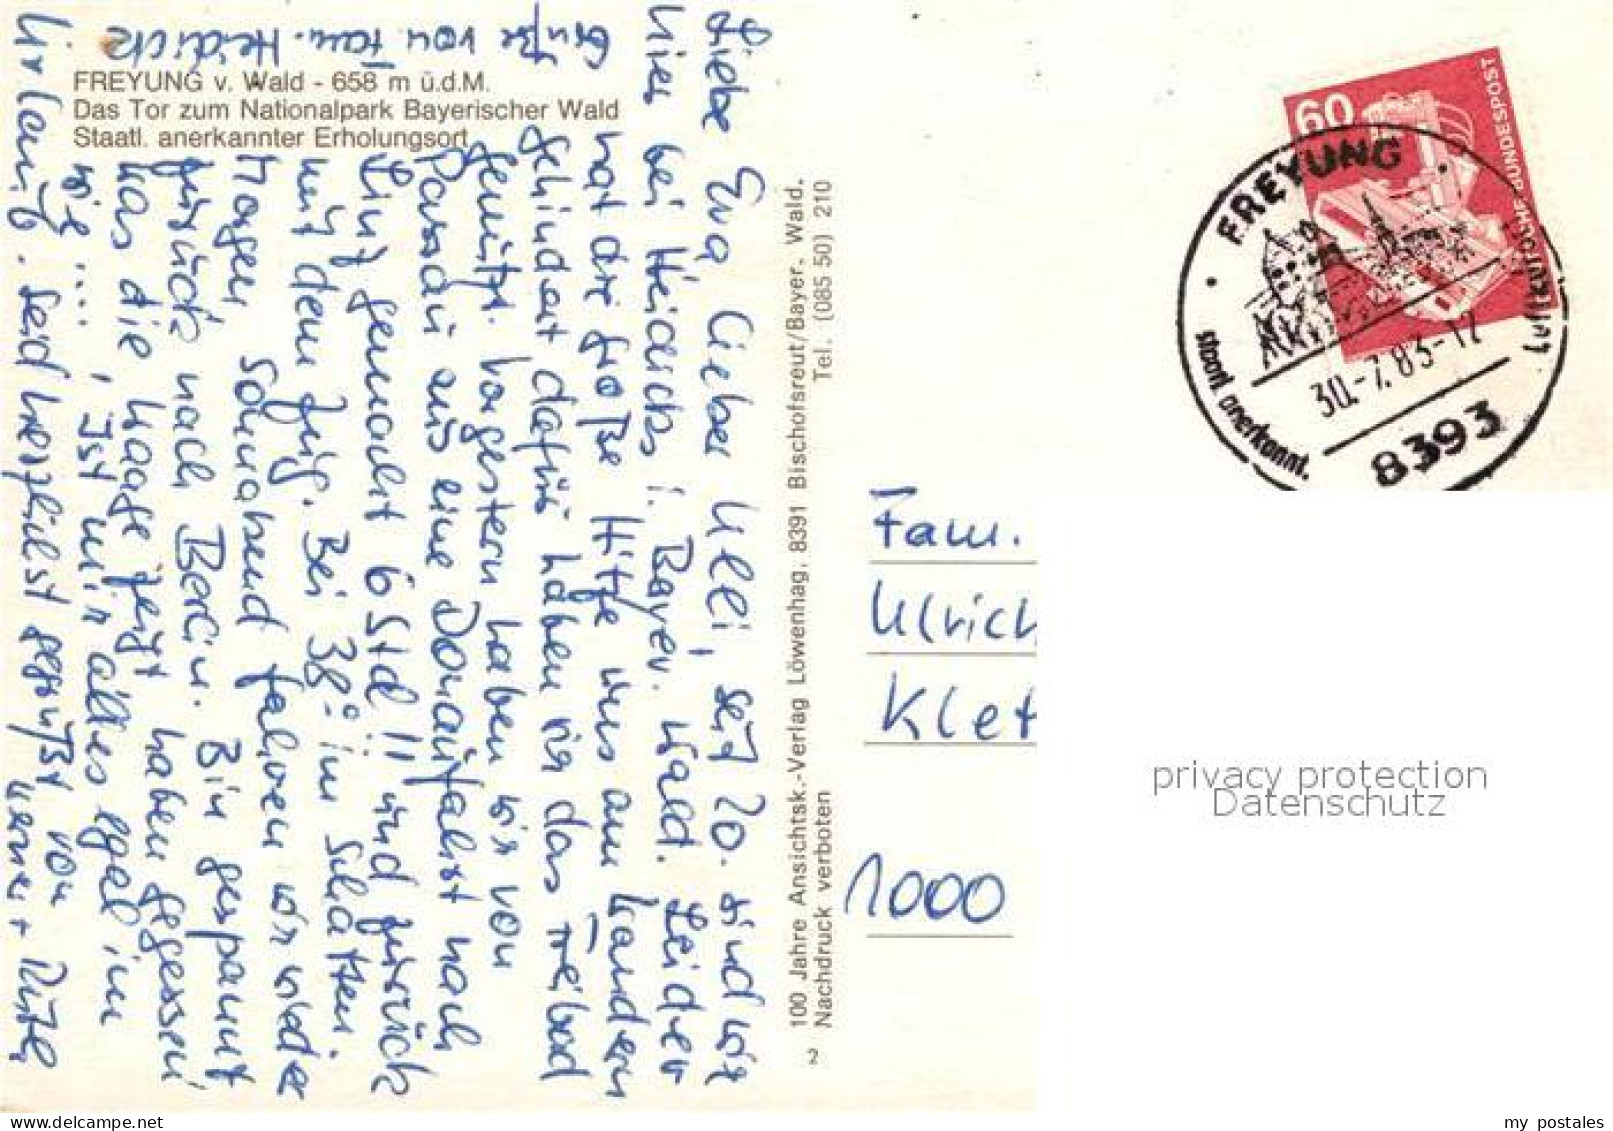 FREYUNG v. Wald - 658 m ü.d.M.
Das Tor zum Nationalpark Bayerischer Wald
Staatl. anerkannter Erholungsort
Liebe Eva, lieber Ulli, seit 20. sind wir
hier bei Heidicks i. Bayer. Wald. Leider
hat die große Hitze uns am Wandern
gehindert dafür haben wir das Freibad
genützt. Vorgestern haben wir von
Passau aus eine Donaufahrt nach
Linz gemacht 6 Std!! und zurück
mit dem Zug. Bei 38° im Schatten.
Morgen, Sonnabend fahren wir wieder
zurück nach Berlin. Bin gespannt
was die Waage zeigt, haben gegessen
wie ...., Ist mir alles egal im
Urlaub. Seid herzlichst gegrüßt von
Werner + Rita
Grüße von Fam. Heidick
100 Jahre Ansichtsk.-Verlag Löwenhag, 8391 Bischofsreut/Bayer. Wald.
Nachdruck verboten Tel. (085 50) 210
2
60
DEUTSCHE BUNDESPOST
FREYUNG
staatl. anerkannt.
30.-7.83-12
8393
Fam.
Ulrich
Klet
1000
privacy protection
Datenschutz
www.delcampe.net
my postales